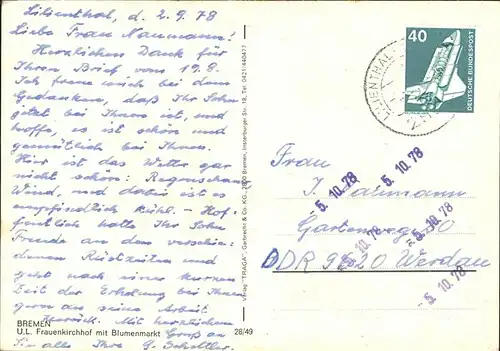 Lilienthal, d. 2.9.78
Liebe Frau Naumann!
Herzlichen Dank für
Ihren Brief vom 17.8.
Ich freue mich bei dem
Gedanken, daß Ihr Sohn
jetzt bei Ihnen ist, und
hoffe, es ist schön und
gemütlich bei Ihnen.
Hier ist das Wetter gar
nicht schön: Regenschauer
Wind, und dabei ist es
empfindlich kühl. - Hof-
fentlich hatte Ihr Sohn
Freude an den verschie-
denen Rüstzeiten und
geht nach einer kurzen
Zeit der Erholung bei Ihnen
gern an seine Arbeit
zurück. Mit herzlichem
Gruß an
Sie alle Ihre G. Schettler.
BREMEN
U.L. Frauenkirchhof mit Blumenmarkt 28/49
Verlag "TRAGA", Garbrecht & Co. KG., 2820 Bremen, Insterburger Str. 18, Tel. 0421/440477
40
DEUTSCHE BUNDESPOST
LILIENTHAL
Frau
I. Naumann
Gartenweg
DDR 9620 Werdau
5.10.78
5.10.78
5.10.78
5.10.78
5.10.78